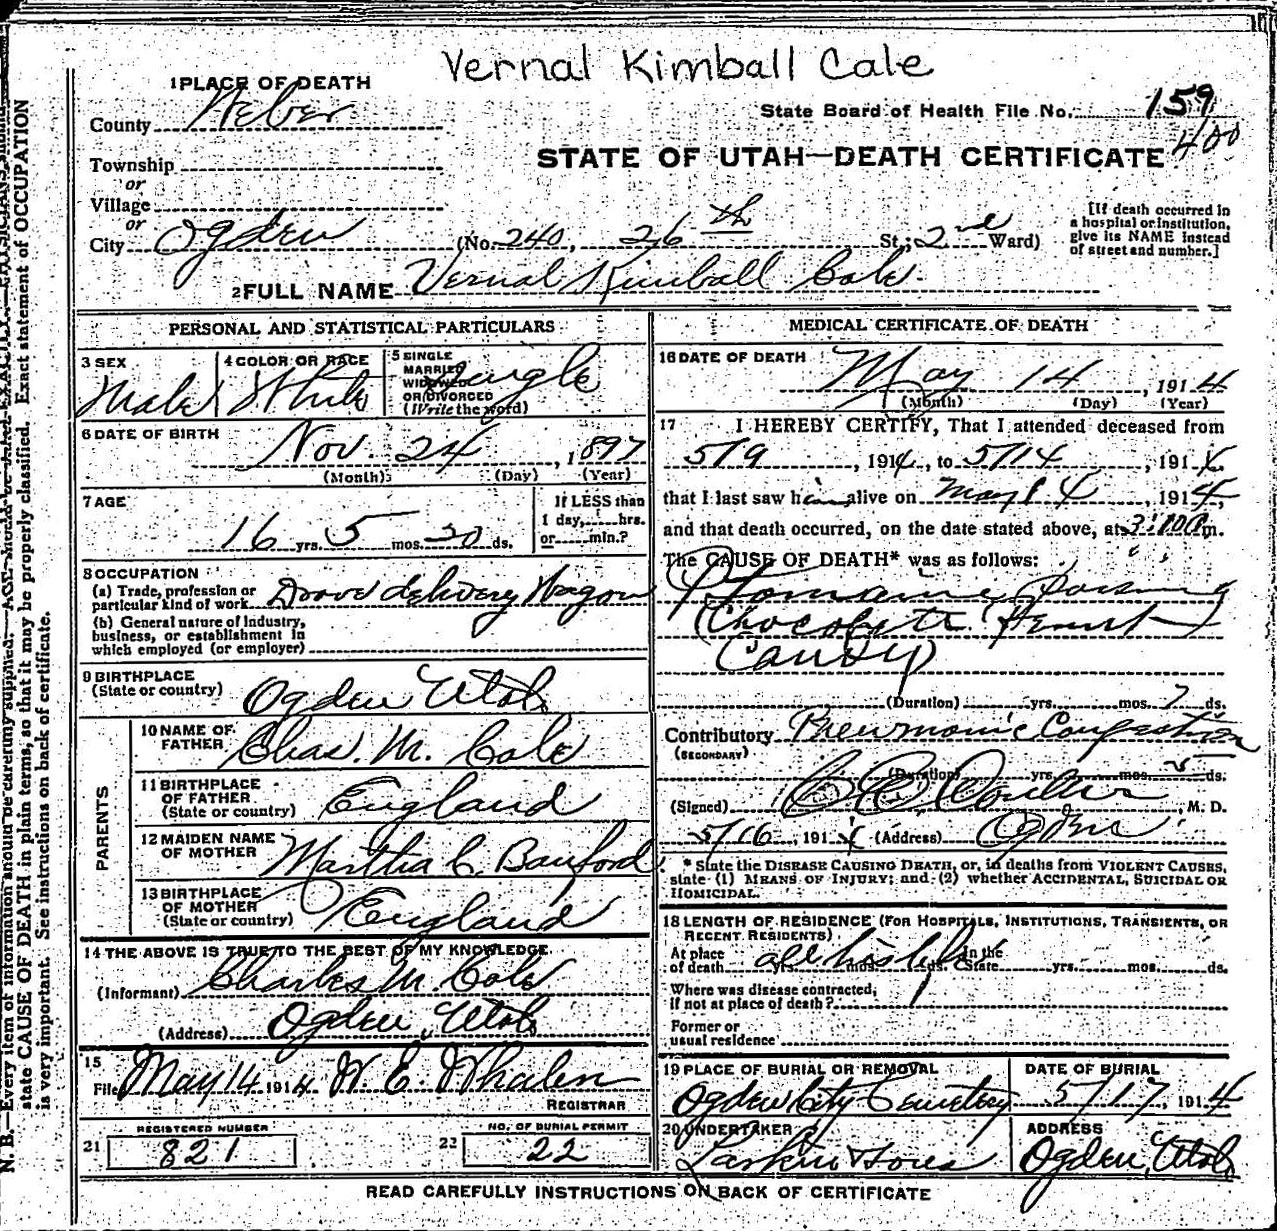 Vernal Kimball Cale
1 PLACE OF DEATH
County Weber
State Board of Health File No. 159
400
STATE OF UTAH—DEATH CERTIFICATE
Township
or
Village
or
City Ogden (No. 240, 26th St.; 2nd Ward)
[If death occurred in
a hospital or institution,
give its NAME instead
of street and number.]
2 FULL NAME Vernal Kimball Cale
PERSONAL AND STATISTICAL PARTICULARS
3 SEX
Male
4 COLOR OR RACE
White
5 SINGLE
MARRIED
WIDOWED
OR DIVORCED
(Write the word)
Single
6 DATE OF BIRTH
Nov. 24, 1897
(Month) (Day) (Year)
7 AGE
16 yrs. 5 mos. 20 ds.
If LESS than
1 day,......hrs.
or......min.?
8 OCCUPATION
(a) Trade, profession or
particular kind of work Drove delivery Wagon
(b) General nature of industry,
business, or establishment in
which employed (or employer)
9 BIRTHPLACE
(State or country) Ogden Utah
PARENTS
10 NAME OF
FATHER Chas. M. Cale
11 BIRTHPLACE
OF FATHER
(State or country) England
12 MAIDEN NAME
OF MOTHER Martha C. Banford
13 BIRTHPLACE
OF MOTHER
(State or country) England
14 THE ABOVE IS TRUE TO THE BEST OF MY KNOWLEDGE
(Informant) Charles M. Cale
(Address) Ogden, Utah
15
Filed May 14 1914 W. E. Whalen
REGISTRAR
21 REGISTERED NUMBER
821
22 NO. OF BURIAL PERMIT
22
MEDICAL CERTIFICATE OF DEATH
16 DATE OF DEATH
May 14, 1914
(Month) (Day) (Year)
17 I HEREBY CERTIFY, That I attended deceased from
5/9, 1914, to 5/14, 1914
that I last saw him alive on May 14, 1914,
and that death occurred, on the date stated above, at 3:10 P m.
The CAUSE OF DEATH* was as follows:
Ptomaine Poisoning
Chocolate Peanut
Candy
(Duration) yrs. mos. 7 ds.
Contributory Pneumonic Congestion
(SECONDARY)
(Duration) yrs. mos. 5 ds.
(Signed) M. D.
5/16, 1914 (Address) Ogden
* State the DISEASE CAUSING DEATH, or, in deaths from VIOLENT CAUSES,
state (1) MEANS OF INJURY; and (2) whether ACCIDENTAL, SUICIDAL OR
HOMICIDAL.
18 LENGTH OF RESIDENCE (FOR HOSPITALS, INSTITUTIONS, TRANSIENTS, OR
RECENT RESIDENTS)
At place
of death all his life yrs. mos. ds. In the State yrs. mos. ds.
Where was disease contracted,
if not at place of death?
Former or
usual residence
19 PLACE OF BURIAL OR REMOVAL
Ogden City Cemetery
DATE OF BURIAL
5/17, 1914
20 UNDERTAKER
Larkin & Sons
ADDRESS
Ogden, Utah
READ CAREFULLY INSTRUCTIONS ON BACK OF CERTIFICATE
N. B.—Every item of information should be carefully supplied. AGE should be stated EXACTLY. PHYSICIANS should
state CAUSE OF DEATH in plain terms, so that it may be properly classified. Exact statement of OCCUPATION
is very important. See instructions on back of certificate.